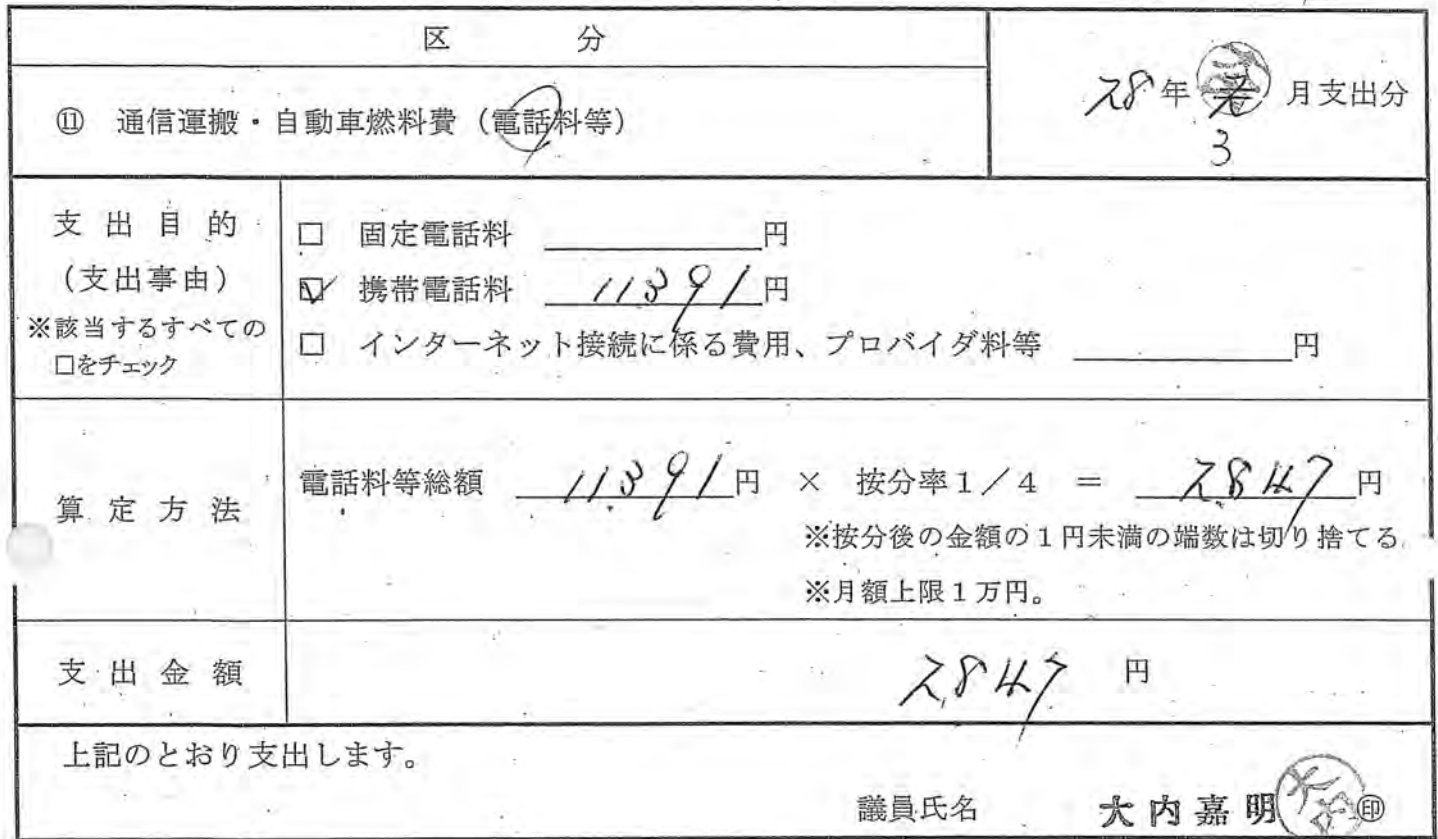 区 分
⑪ 通信運搬・自動車燃料費（電話料等）
28年 月支出分
3
支出目的
（支出事由）
※該当するすべての
□をチェック
□ 固定電話料 円
☑ 携帯電話料 11391円
□ インターネット接続に係る費用、プロバイダ料等 円
算定方法
電話料等総額 11391円 × 按分率1／4 ＝ 2847円
※按分後の金額の1円未満の端数は切り捨てる
※月額上限1万円。
支出金額
2847 円
上記のとおり支出します。
議員氏名 大内嘉明 ㊞